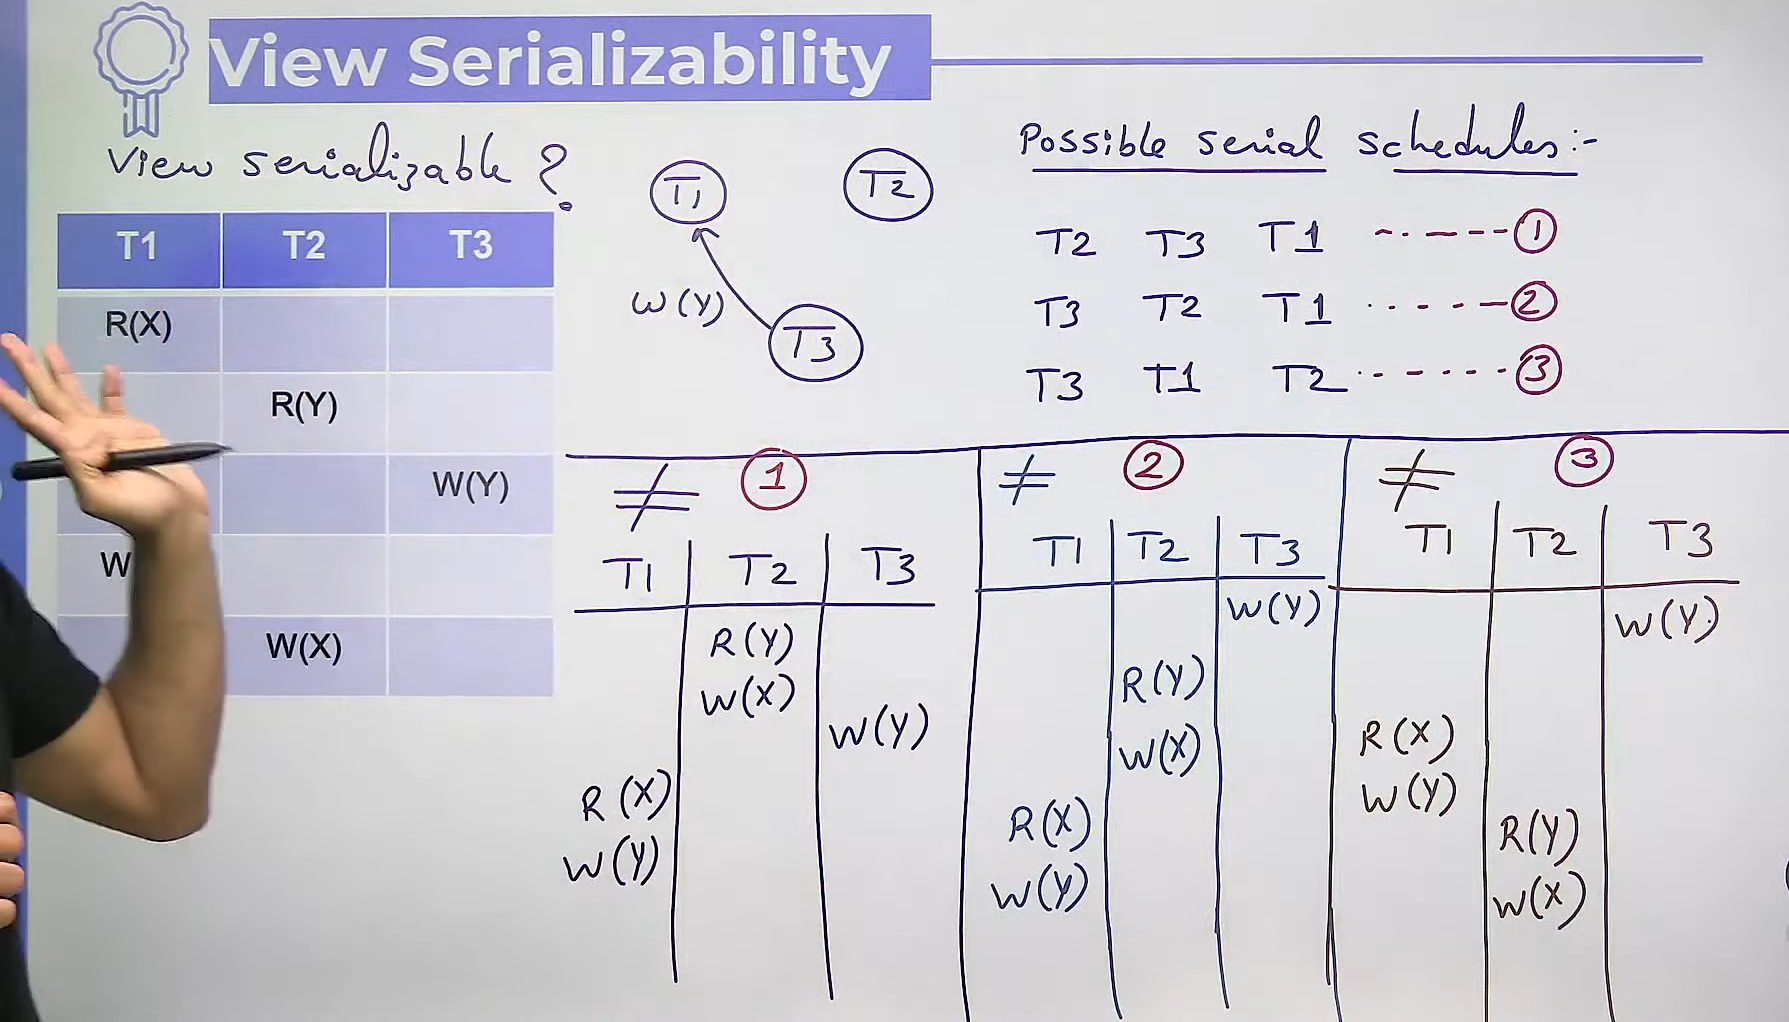 View Serializability
View serializable ?
T1 T2 T3
R(X)
R(Y)
W(Y)
W
W(X)
T1
T2
W(Y)
T3
Possible serial schedules:-
T2 T3 T1 ------ 1
T3 T2 T1 ------ 2
T3 T1 T2 ------ 3
≠ 1
T1 T2 T3
R(Y)
W(X)
W(Y)
R(X)
W(Y)
≠ 2
T1 T2 T3
W(Y)
R(Y)
W(X)
R(X)
W(Y)
≠ 3
T1 T2 T3
W(Y)
R(X)
W(Y)
R(Y)
W(X)